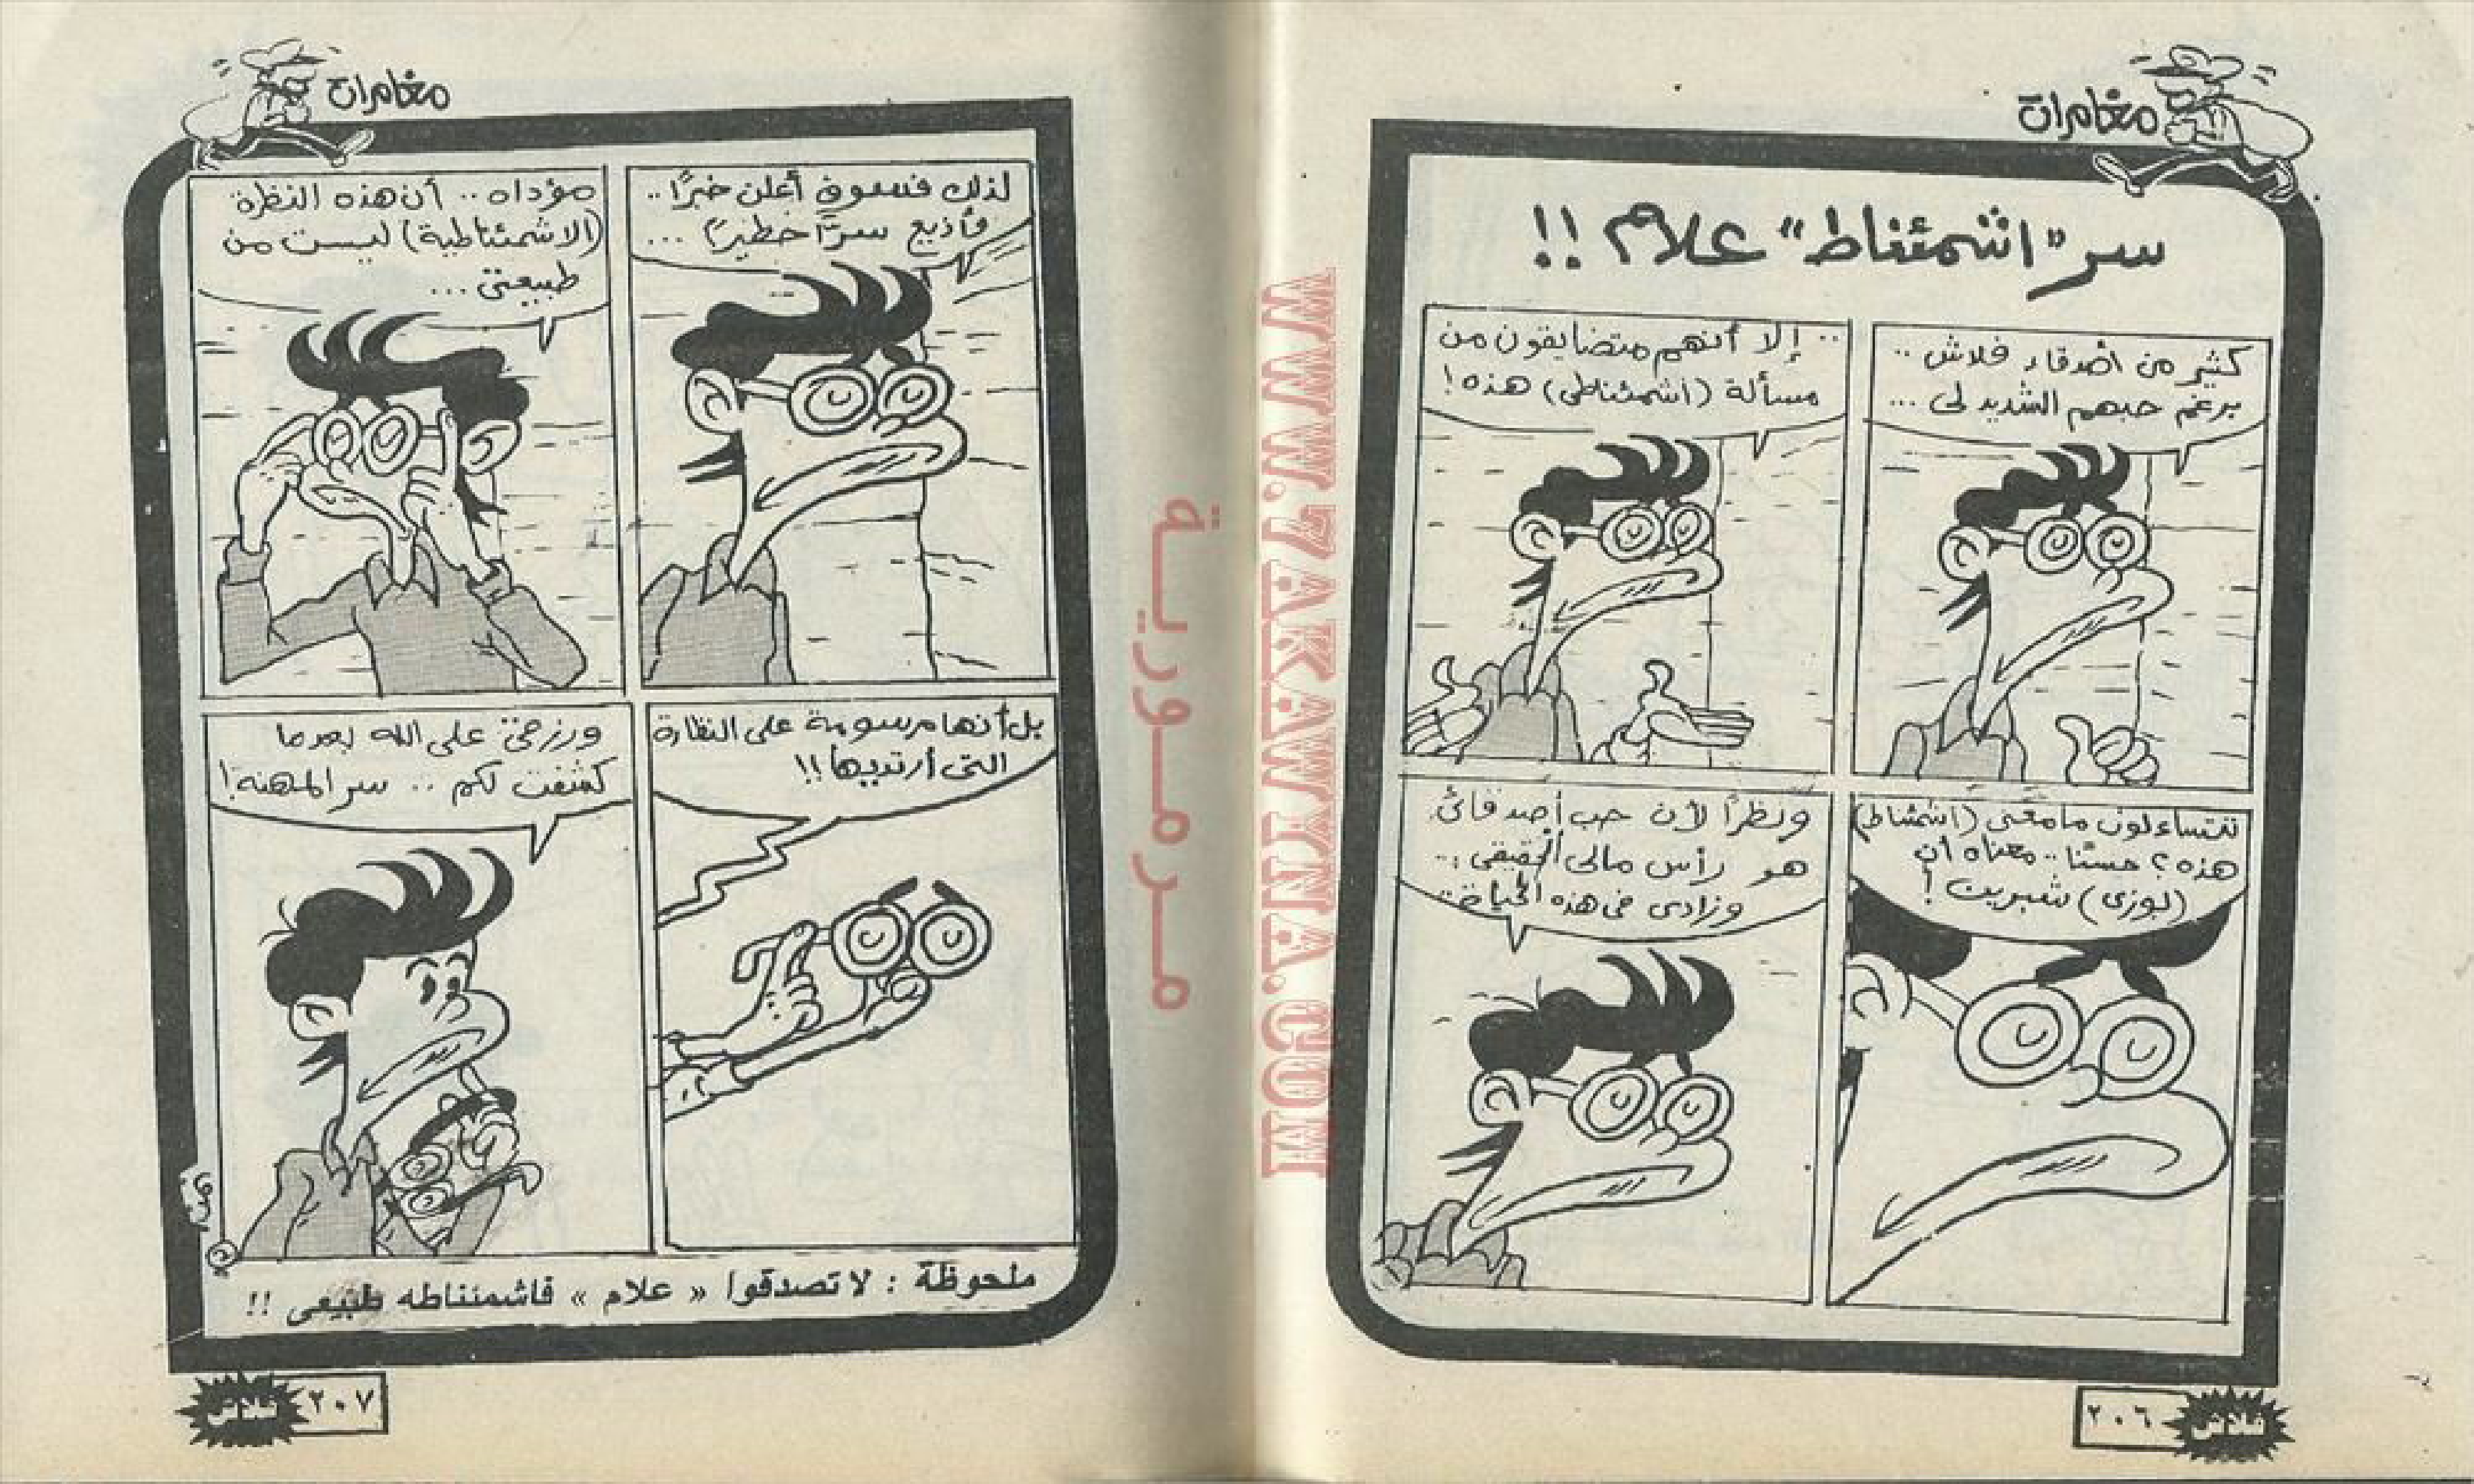 مغامرات
سر "اشمئناط" علام !!
كثير من أصدقاء فلاش ..
برغم حبهم الشديد لى ...
.. إلا أنهم متضايقون من
مسألة (اشمئناطى) هذه !
تتساءلون ما معنى (اشمئناط)
هذه ؟ حسنًا .. معناه أن
(بوزى) شبرين !
ونظرًا لأن حب أصدقائى
هو رأس مالى الحقيقى ..
وزادى فى هذه الحياة ..
٢٠٦ فلاش
مغامرات
لذلك فسوف أعلن خبرًا ..
وأذيع سرًا خطيرًا ...
مؤداه .. أن هذه النظرة
(الاشمئناطية) ليست من
طبيعتى ...
بل أنها مرسومة على النظارة
التى أرتديها !!
ورزقى على الله بعد ما
كشفت لكم .. سر المهنة !
ملحوظة : لا تصدقوا « علام » فاشمئناطه طبيعى !!
٢٠٧ فلاش
مرمورية